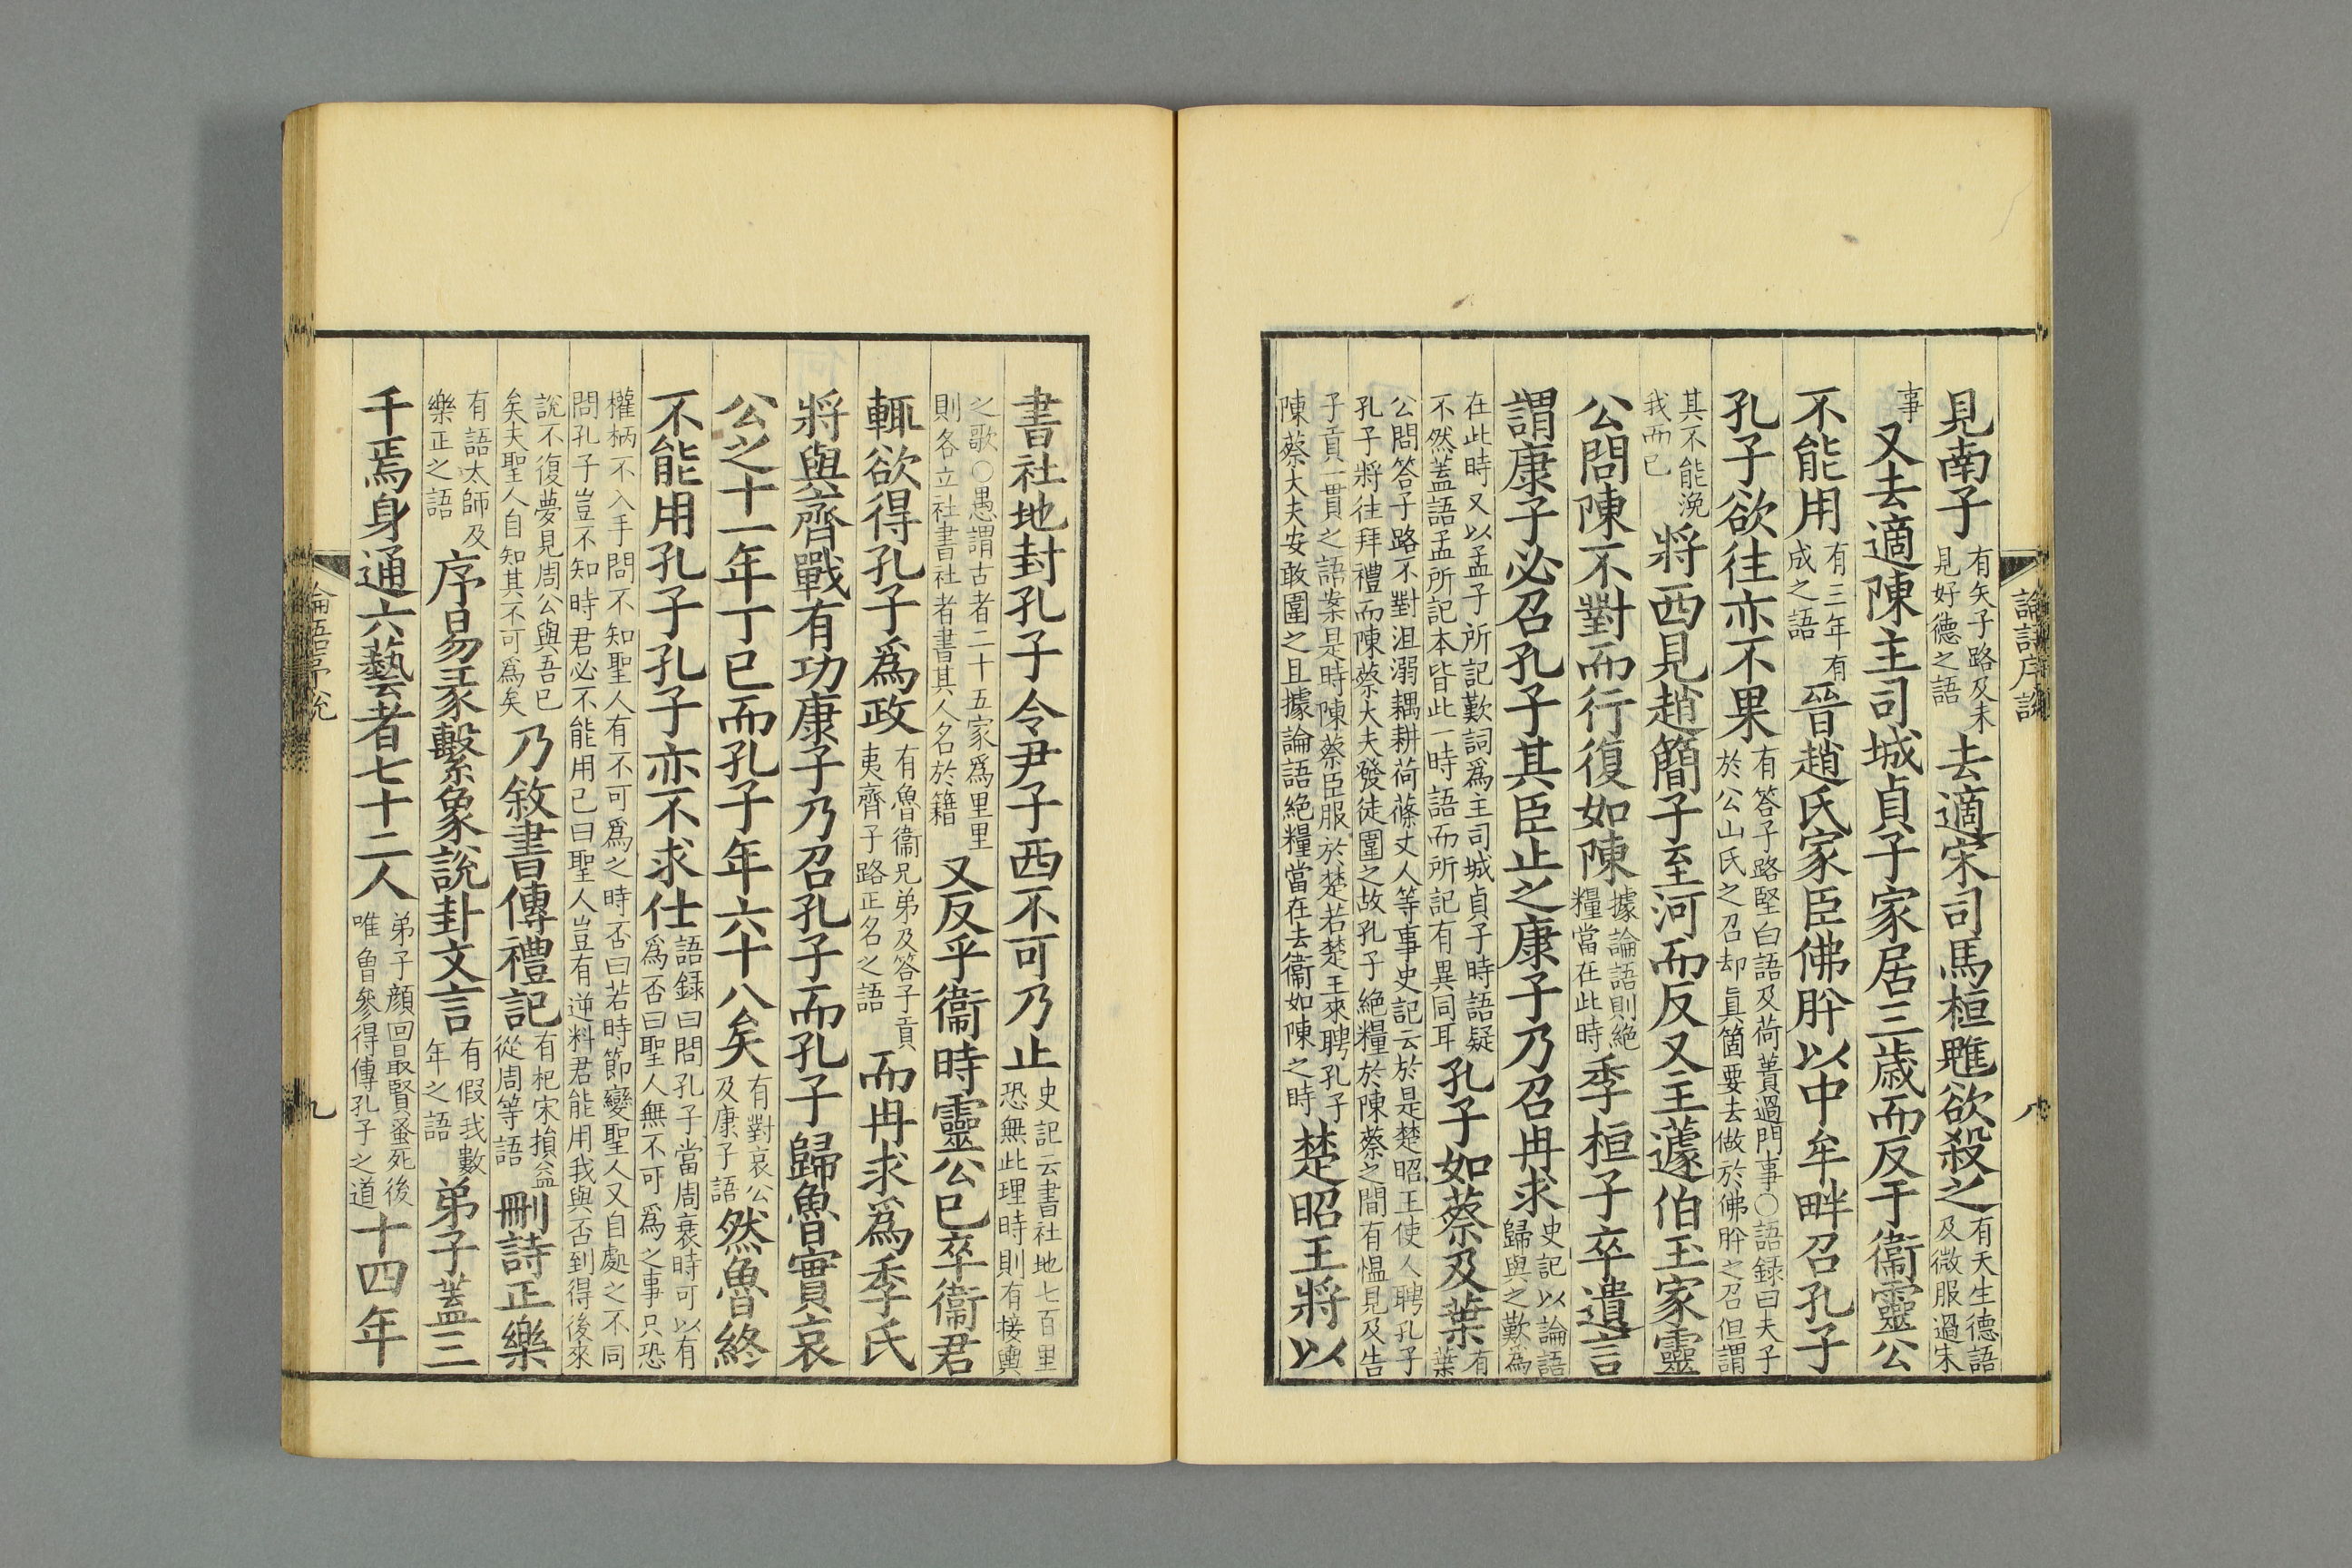 見南子有矢子路及未見好德之語去適宋司馬桓魋欲殺之有天生德語及微服過宋
事又去適陳主司城貞子家居三歲而反于衞靈公
不能用有三年有成之語晉趙氏家臣佛肸以中牟畔召孔子
孔子欲往亦不果有答子路堅白語及荷蕢過門事○語録曰夫子於公山氏之召却眞箇要去做於佛肸之召但謂
其不能浼我而已將西見趙簡子至河而反又主蘧伯玉家靈
公問陳不對而行復如陳據論語則絶糧當在此時季桓子卒遺言
謂康子必召孔子其臣止之康子乃召冉求史記以論語歸與之歎爲
在此時又以孟子所記歎詞爲主司城貞子時語疑不然蓋語孟所記本皆此一時語而所記有異同耳孔子如蔡及葉有葉
公問答子路不對沮溺耦耕荷蓧丈人等事史記云於是楚昭王使人聘孔子孔子將往拜禮而陳蔡大夫發徒圍之故孔子絶糧於陳蔡之間有慍見及告
子貢一貫之語案是時陳蔡臣服於楚若楚王來聘孔子陳蔡大夫安敢圍之且據論語絶糧當在去衞如陳之時楚昭王將以
論語序說
八
書社地封孔子令尹子西不可乃止史記云書社地七百里恐無此理時則有接輿
之歌○愚謂古者二十五家爲里里則各立社書社者書其人名於籍又反乎衞時靈公已卒衞君
輒欲得孔子爲政有魯衞兄弟及答子貢夷齊子路正名之語而冉求爲季氏
將與齊戰有功康子乃召孔子而孔子歸魯實哀
公之十一年丁巳而孔子年六十八矣有對哀公及康子語然魯終
不能用孔子孔子亦不求仕語録曰問孔子當周衰時可以有爲否曰聖人無不可爲之事只恐
權柄不入手問不知聖人有不可爲之時否曰若時節變聖人又自處之不同問孔子豈不知時君必不能用已曰聖人豈有逆料君能用我與否到得後來
說不復夢見周公與吾已矣夫聖人自知其不可爲矣乃敘書傳禮記有杞宋損益從周等語刪詩正樂
有語太師及樂正之語序易彖繫象說卦文言有假我數年之語弟子蓋三
千焉身通六藝者七十二人弟子顏回最賢蚤死後唯曾參得傳孔子之道十四年
論語序說
九